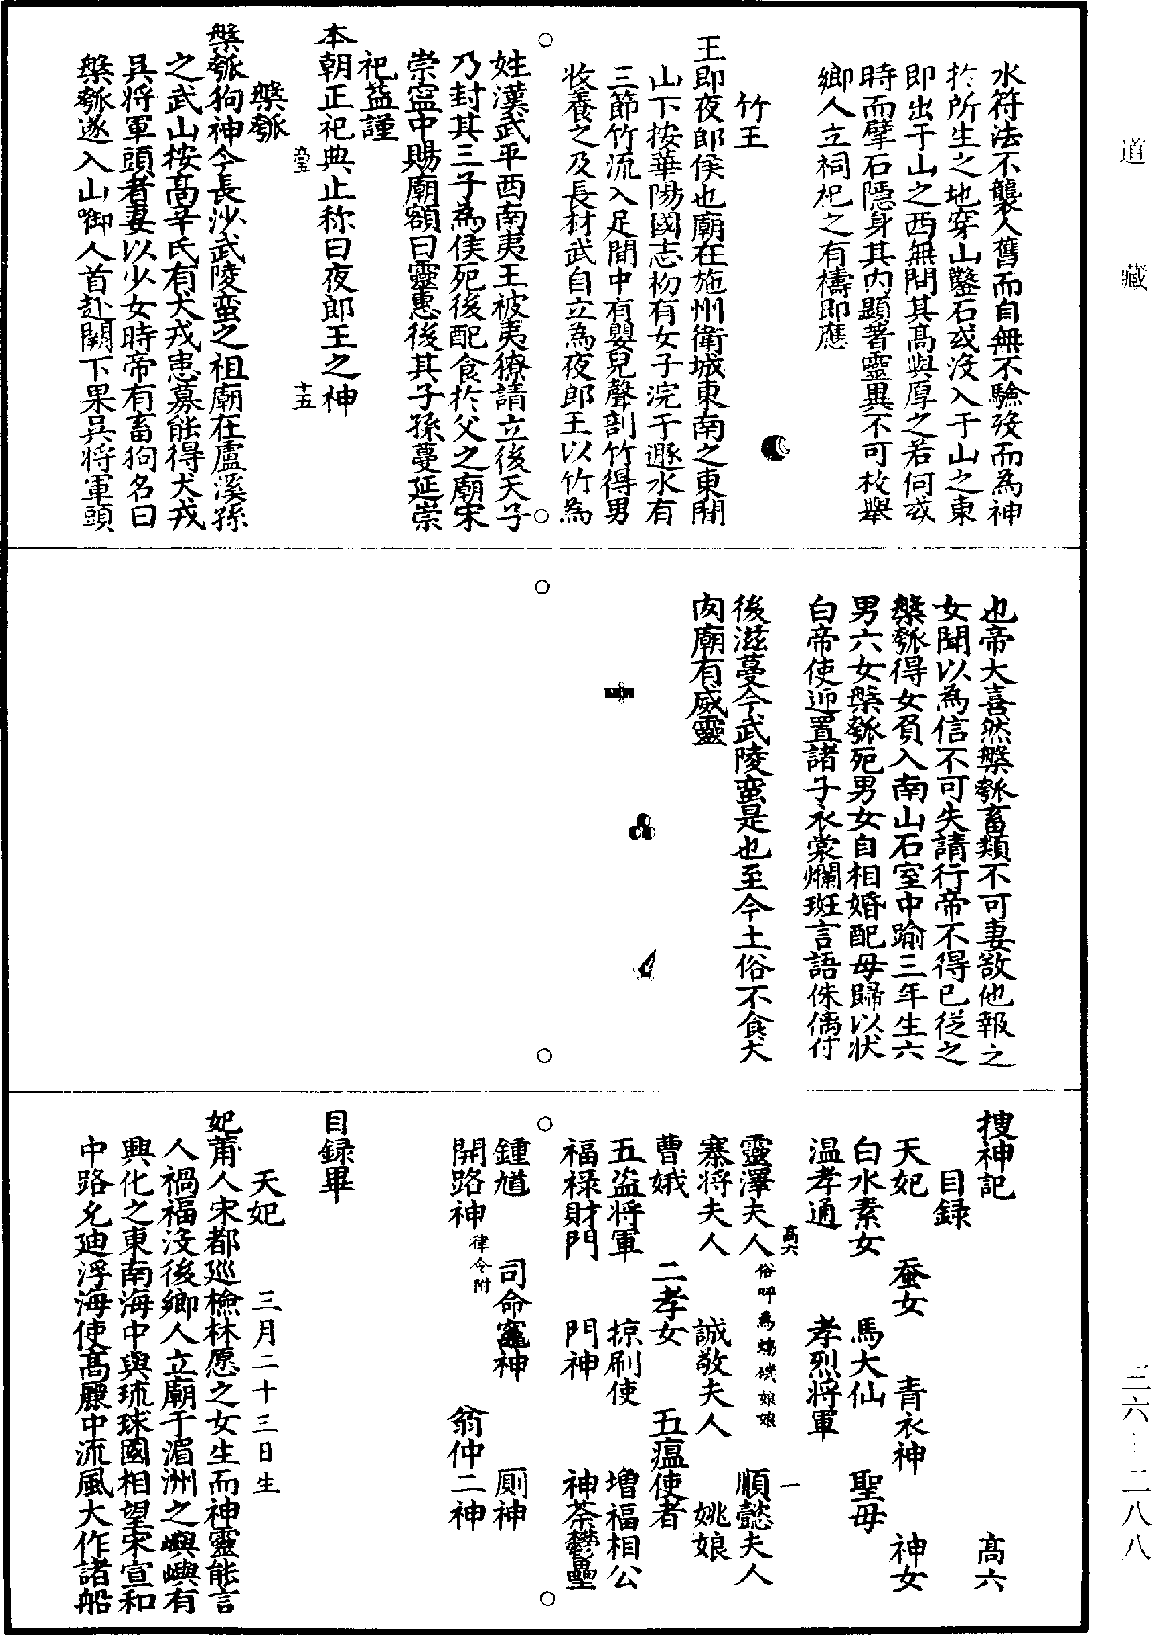 道藏
三六—二八八
水符法不襲人舊而自無不驗歿而為神
於所生之地穿山鑿石或沒入于山之東
即出于山之西無間其高與厚之若何或
時而擘石隱身其內顯著靈異不可枚舉
鄉人立祠祀之有禱即應
竹王
王即夜郎侯也廟在施州衛城東南之東關
山下按華陽國志初有女子浣于遯水有
三節竹流入足間中有嬰兒聲剖竹得男
收養之及長材武自立為夜郎王以竹為
姓漢武平西南夷王被夷獠請立後天子
乃封其三子為侯死後配食於父之廟宋
崇寧中賜廟額曰靈惠後其子孫蔓延崇
祀益謹
本朝正祀典止称曰夜郎王之神
十五
槃瓠
槃瓠狗神今長沙武陵蛮之祖廟在盧溪孫
之武山按高辛氏有犬戎患募能得犬戎
吳將軍頭者妻以少女時帝有畜狗名曰
槃瓠遂入山啣人首赴闕下果吳將軍頭
也帝大喜然槃瓠畜類不可妻欲他報之
女聞以為信不可失請行帝不得已從之
槃瓠得女負入南山石室中踰三年生六
男六女槃瓠死男女自相婚配母歸以状
白帝使迎置諸子衣裳爛斑言語侏儷付
後滋蔓今武陵蛮是也至今土俗不食犬
肉廟有威靈
搜神記 高六
目録
天妃 蚕女 青衣神 神女
白水素女 馬大仙 聖母
温孝通 孝烈将軍
高六 一
靈澤夫人 俗呼為蟂磯娘娘 順懿夫人
寨将夫人 誠敬夫人 姚娘
曹娥 二孝女 五瘟使者
五盗将軍 掠刷使 増福相公
福禄財門 門神 神荼鬱壘
鍾馗 司命竈神 厠神
開路神 律令附 翁仲二神
目録畢
天妃 三月二十三日生
妃莆人宋都巡檢林愿之女生而神靈能言
人禍福没後鄉人立廟于湄洲之嶼嶼有
興化之東南海中與琉球國相望宋宣和
中路允迪浮海使高麗中流風大作諸船